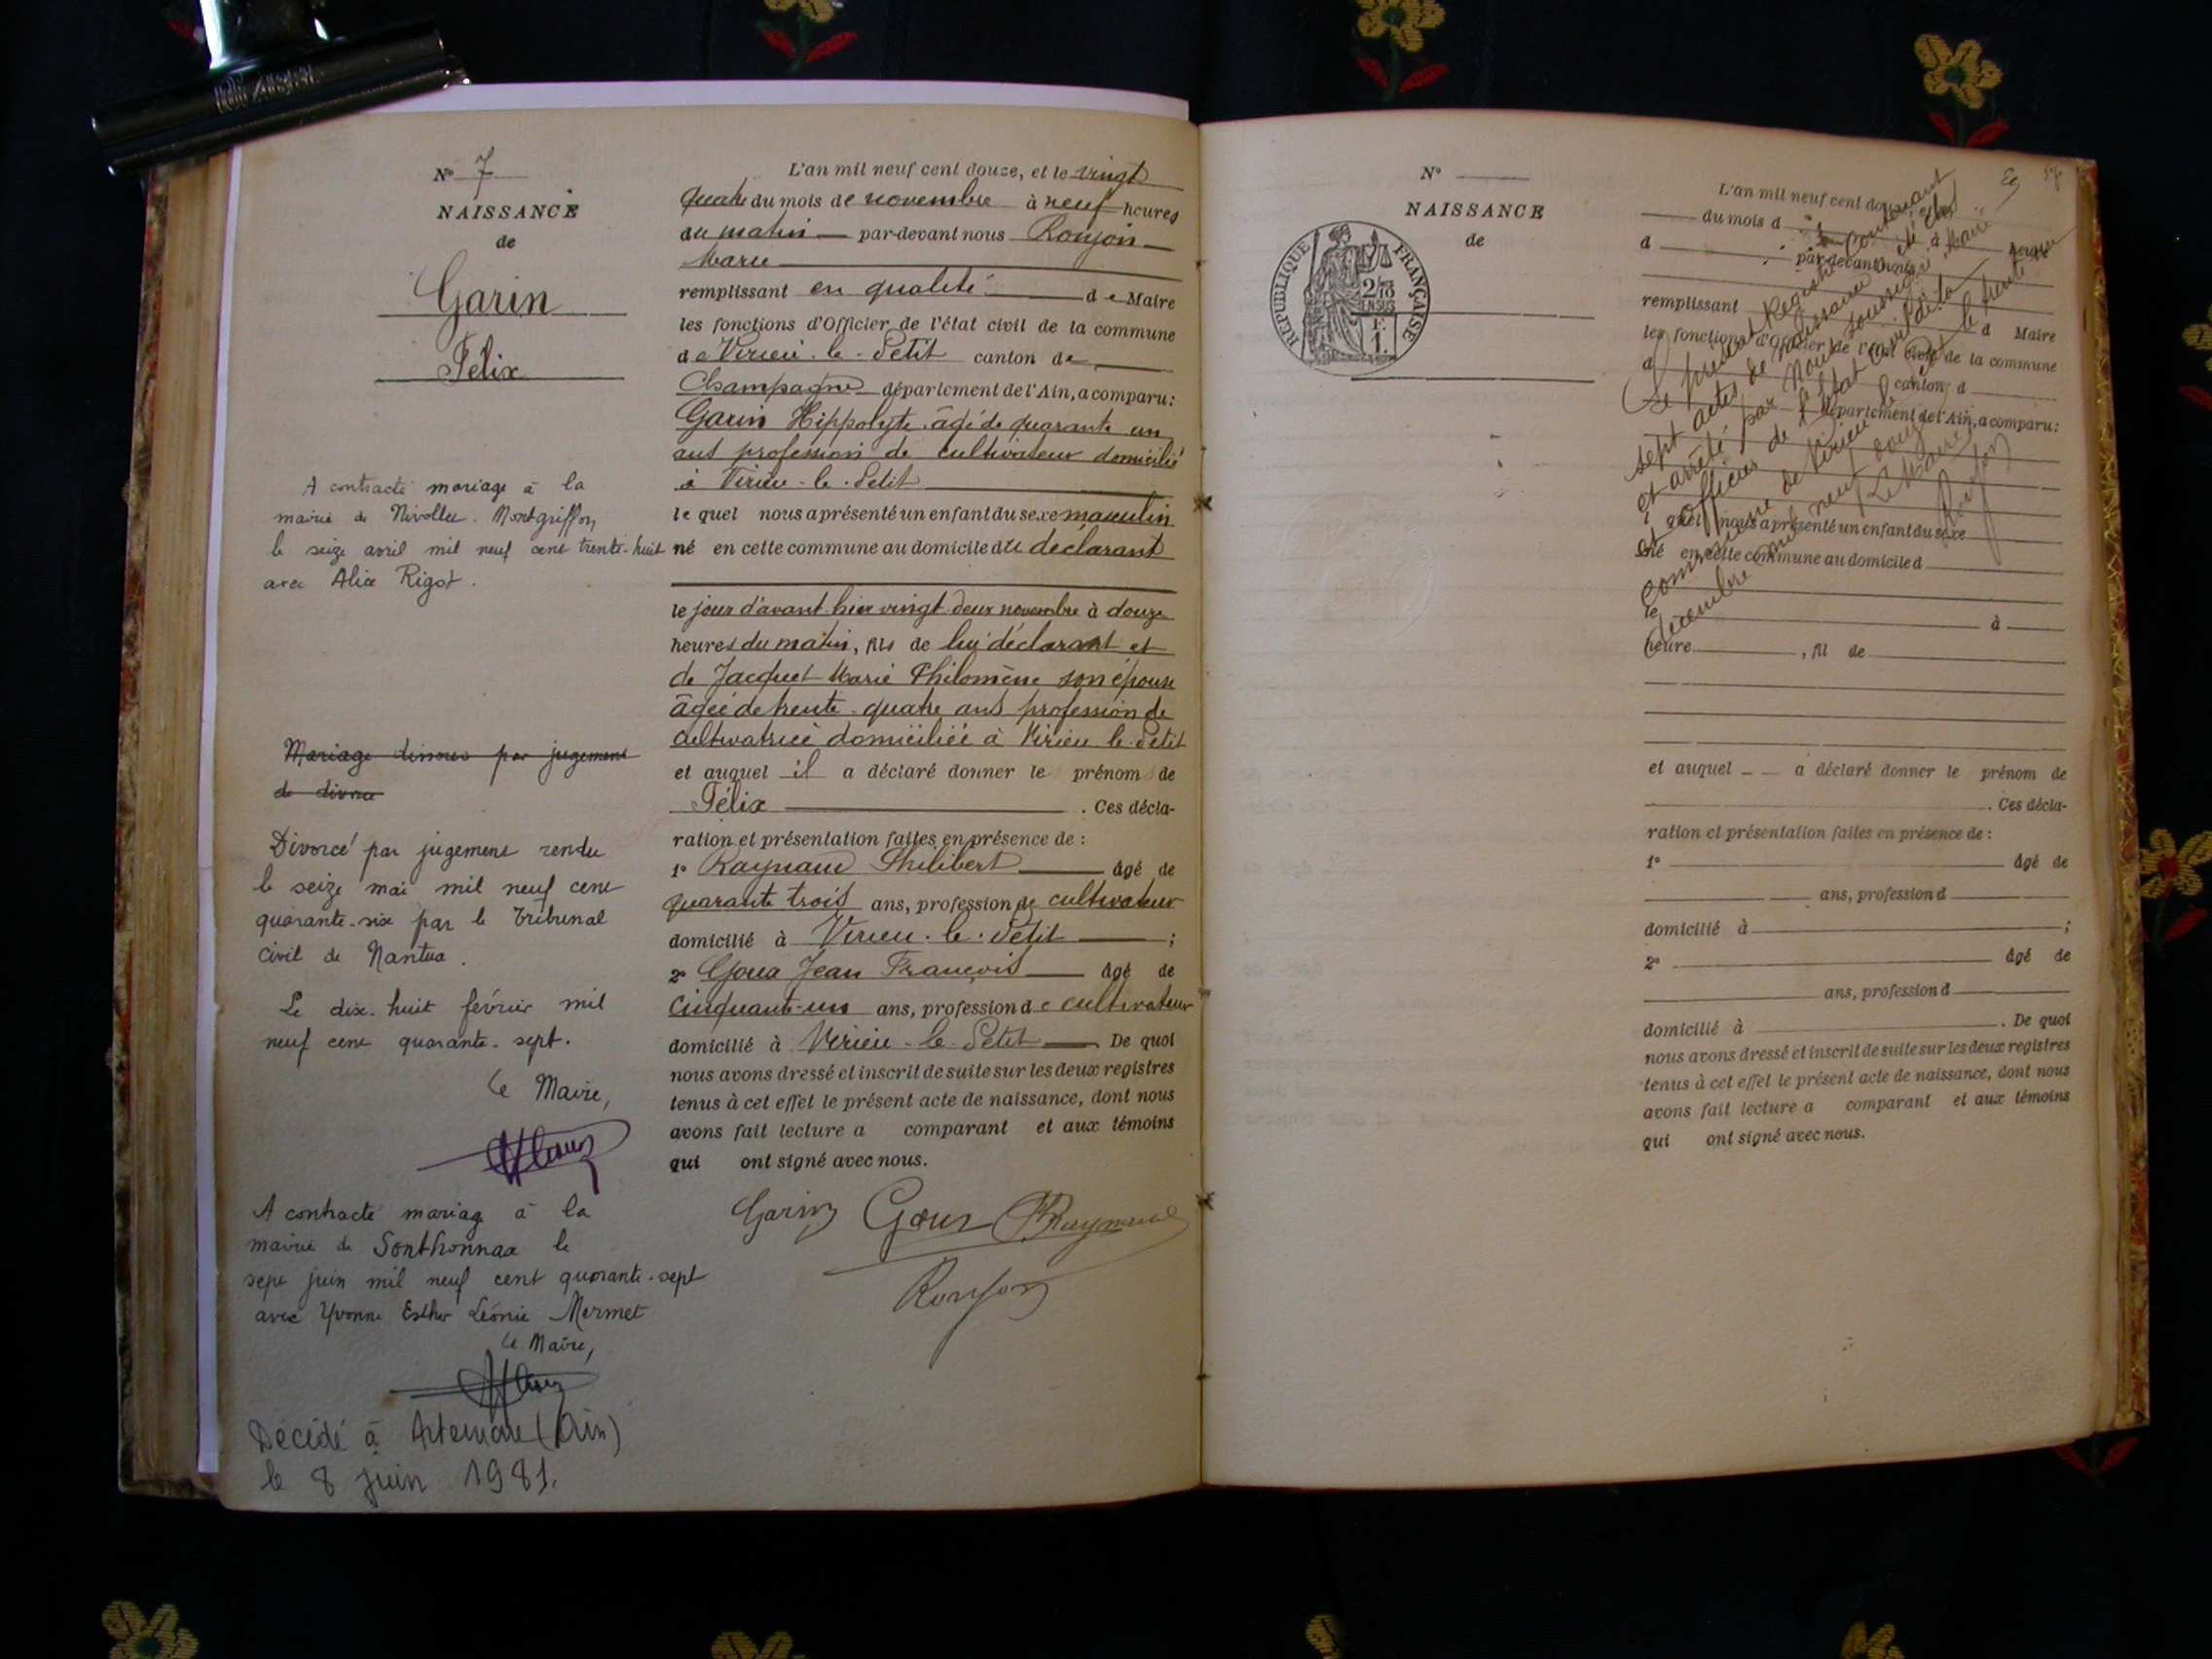 N° 7
NAISSANCE
de
Garin
Félix
A contracté mariage à la
mairie de Nivollet-Montgriffon
le seize avril mil neuf cent trente-huit
avec Alice Rigot.
Mariage dissous par jugement
de divorce
Divorcé par jugement rendu
le seize mai mil neuf cent
quarante-six par le Tribunal
Civil de Nantua.
Le dix-huit février mil
neuf cent quarante-sept.
Le Maire,
A contracté mariage à la
mairie de Sonthonnax le
sept juin mil neuf cent quarante-sept
avec Yvonne Esther Léonie Mermet
Le Maire,
Décédé à Artemare (Ain)
le 8 juin 1981.
L'an mil neuf cent douze, et le vingt
quatre du mois de novembre à neuf heures
du matin par-devant nous Ronjon
Marie
remplissant en qualité de Maire
les fonctions d'Officier de l'état civil de la commune
de Virieu-le-Petit canton de
Champagne département de l'Ain, a comparu :
Garin Hippolyte, âgé de quarante un
ans profession de cultivateur domicilié
à Virieu-le-Petit
le quel nous a présenté un enfant du sexe masculin
né en cette commune au domicile du déclarant
le jour d'avant hier vingt-deux novembre à douze
heures du matin, fils de lui déclarant et
de Jacquet Marie Philomène son épouse
âgée de trente-quatre ans profession de
cultivatrice domiciliée à Virieu-le-Petit
et auquel il a déclaré donner le prénom de
Félix . Ces décla-
ration et présentation faites en présence de :
1° Raynaud Philibert âgé de
quarante trois ans, profession de cultivateur
domicilié à Virieu-le-Petit ;
2° Goux Jean François âgé de
cinquante-un ans, profession de cultivateur
domicilié à Virieu-le-Petit De quoi
nous avons dressé et inscrit de suite sur les deux registres
tenus à cet effet le présent acte de naissance, dont nous
avons fait lecture a comparant et aux témoins
qui ont signé avec nous.
Garin Goux P. Raynaud
Ronjon
N°
NAISSANCE
de
REPUBLIQUE FRANÇAISE
L'an mil neuf cent douze, et le
du mois d à heure
d par-devant nous
remplissant d Maire
les fonctions d'Officier de l'état civil de la commune
d canton d
département de l'Ain, a comparu :
l quel nous a présenté un enfant du sexe
né en cette commune au domicile d
le à
heure , fil de
et auquel a déclaré donner le prénom de
. Ces décla-
ration et présentation faites en présence de :
1° âgé de
ans, profession d
domicilié à ;
2° âgé de
ans, profession d
domicilié à . De quoi
nous avons dressé et inscrit de suite sur les deux registres
tenus à cet effet le présent acte de naissance, dont nous
avons fait lecture a comparant et aux témoins
qui ont signé avec nous.
Le présent Registre contenant
sept actes de naissance a été clos
et arrêté par Nous soussigné Maire
et officier de l'état civil de la
Commune de Virieu-le-Petit le trente
décembre mil neuf cent douze
Le Maire
Ronjon